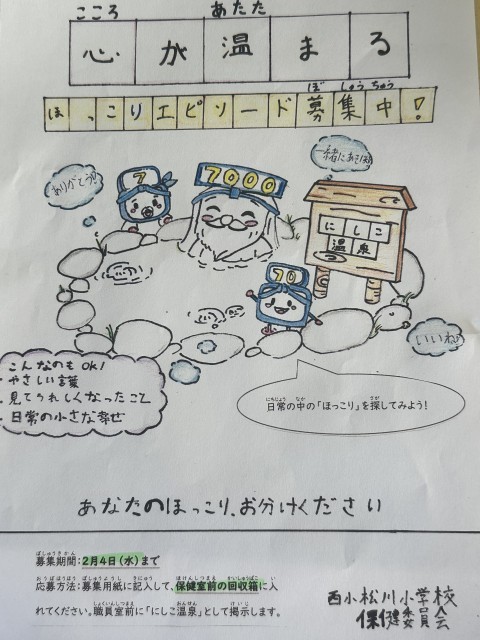 こころ あたた
心が温まる
ぼ しゅうちゅう
ほっこりエピソード募集中!
ありがとう!
一緒にあそぼ
7
7000
にしこ
温泉
70
いいね
こんなのもOK!
・やさしい言葉
・見てうれしくなったこと
・日常の小さな幸せ
にちじょう なか さが
日常の中の「ほっこり」を探してみよう!
あなたのほっこり、お分けください
ぼしゅうきかん
募集期間:2月4日(水)まで
おうぼほうほう ぼしゅうようし きにゅう ほけんしつまえ かいしゅうばこ い
応募方法:募集用紙に記入して、保健室前の回収箱に入
しょくいんしつまえ おんせん けいじ
れてください。職員室前に「にしこ温泉」として掲示します。
西小松川小学校
保健委員会